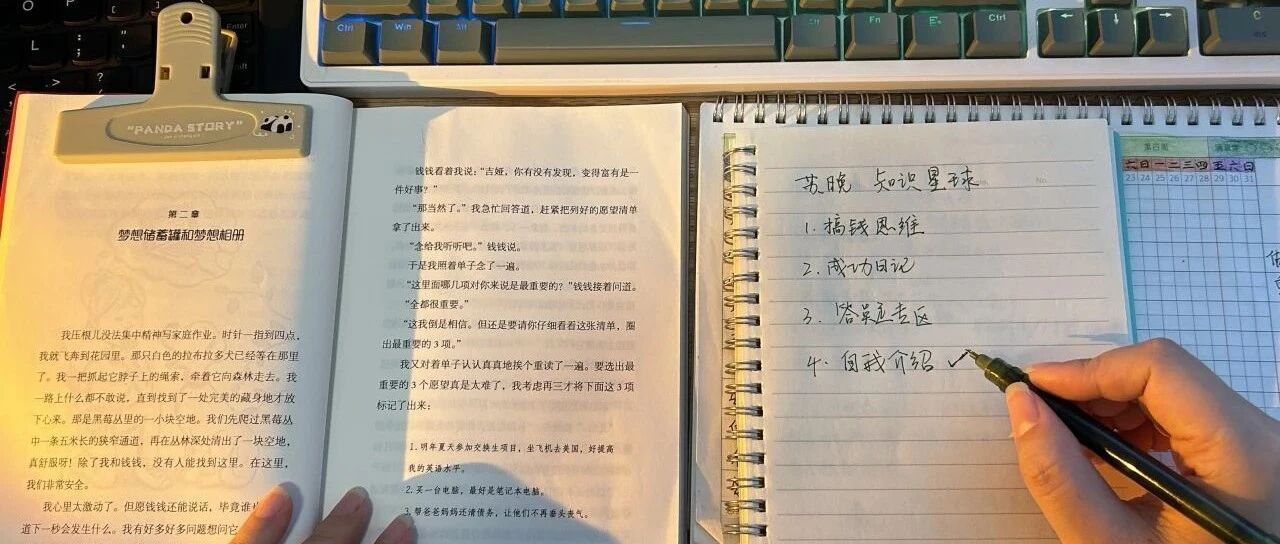 Ctrl
Win
Alt
Alt
Fn
Ctrl
Enter
"PANDA STORY"
第二章
梦想储蓄罐和梦想相册
我压根儿没法集中精神写家庭作业。时针一指到四点，
我就飞奔到花园里。那只白色的拉布拉多犬已经等在那里
了。我一把抓起它脖子上的绳索，牵着它向森林走去。我
一路上什么都不敢说，直到找到了一处完美的藏身地才放
下心来。那是黑莓丛里的一小块空地。我们先爬过黑莓丛
中一条五米长的狭窄通道，再在丛林深处清出了一块空地，
真舒服呀！除了我和钱钱，没有人能找到这里。在这里，
我们非常安全。
我心里太激动了。但愿钱钱还能说话，毕竟谁
道下一秒会发生什么。我有好多好多问题想问它
钱钱看着我说：“吉娅，你有没有发现，变得富有是一
件好事？”
“那当然了。”我急忙回答道，赶紧把列好的愿望清单
拿了出来。
“念给我听听吧。”钱钱说。
于是我照着单子念了一遍。
“这里面哪几项对你来说是最重要的？”钱钱接着问道。
“全都很重要。”
“这我倒是相信。但还是要请你仔细看看这张清单，圈
出最重要的 3 项。”
我又对着单子认认真真地挨个重读了一遍。要选出最
重要的 3 个愿望真是太难了，我考虑再三才将下面这 3 项
标记了出来：
1. 明年夏天参加交换生项目，坐飞机去美国，好提高
我的英语水平。
2. 买一台电脑，最好是笔记本电脑。
3. 帮爸爸妈妈还清债务，让他们不再垂头丧气。
苏晚 知识星球
1. 搞钱思维
2. 成功日记
3. 答疑专区
4. 自我介绍 ✓
第四周
六日一二三四五六日
23 24 25 26 27 28 29 30 31